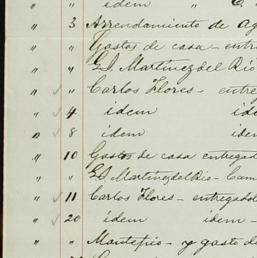 " " idem " C.
" 3 Arrendamiento de Ag
" " Gastos de casa - entre
" " G. J. Martinez del Rio
" " Carlos Flores - entre
" 4 idem ide
" 8 idem idem
" 10 Gastos de casa entregad
" " G. J. Martinez del Rio - Cam
" 11 Carlos Flores - entregado
" 20 idem idem -
" " Montepio - y gasto de